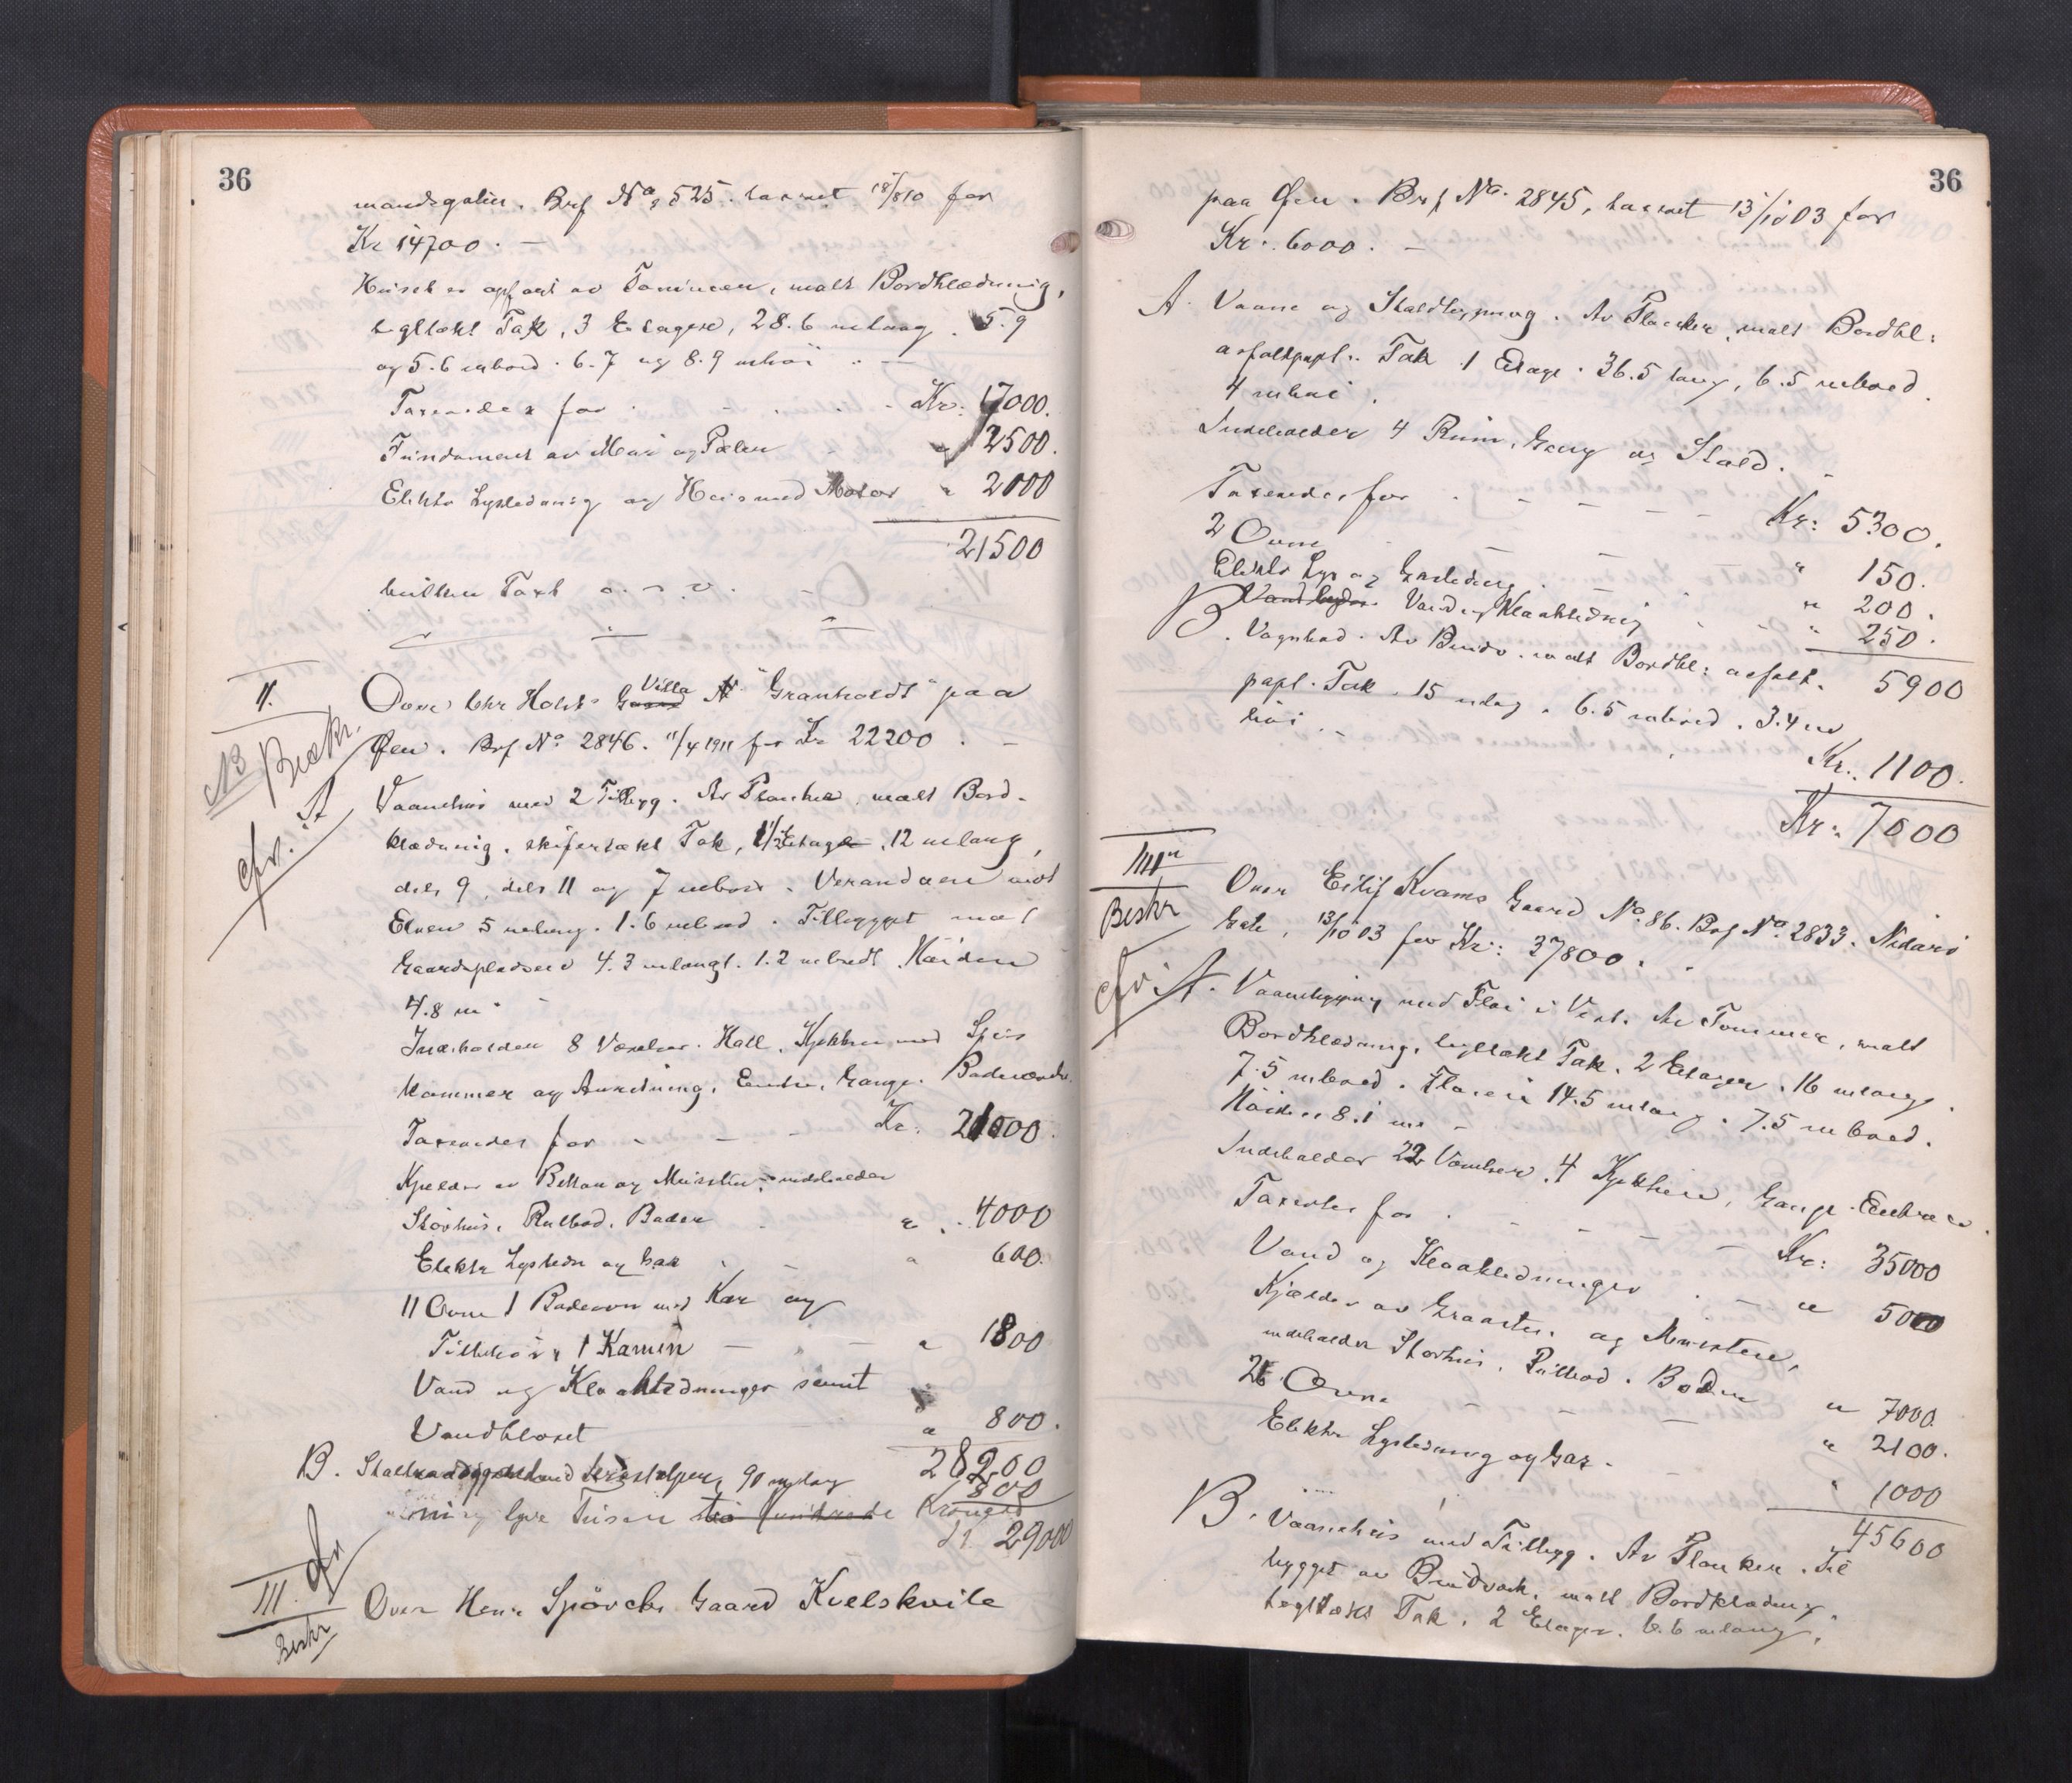 36
mandsgaten. Brf No 525. taxeret 18/8 10 for
Kr 14700. —
Huset er opført av Tømmer, malt Bordklædning,
tegltækt Tak, 3 Etager, 28.6 m lang. 5.9
og 5.6 m bred. 6.7 og 8.9 m høi. —
Taxeredes for Kr: 17000.
Fundament av Mur og Pæler " 2500.
Elektr Lysledning og Heis med Motor " 2000
21500
hvilken Taxt o. s. v.
II.
Over Chr Holst's Gaard Villa "Granholdt" paa
NB Beskr.
Øen. Brf No 2846. 11/4 1911 for Kr 22200. —
cfr. A
Vaanehus med 2 Tilbyg. Av Planker, malt Bord-
klædning, skifertækt Tak, 1 1/2 Etage, 12 m lang,
dels 9, dels 11 og 7 m bred. Verandaen mot
Elven 5 m lang. 1.6 m bred. Tilbygget mot
Gaardspladsen 4.3 m langt. 1.2 m bredt. Høiden
4.8 m
Indeholder 8 Værelser. Hall, Kjøkken med Spis
kammer og Anretning, Entre, Gange. Badeværelse
Taxeredes for Kr: 21000.
Kjelder av Betton og Mursten, indeholder
Storhus, Rulbod, Boder " 4000
Elektr Lysledn og Gas " 600.
11 Ovne 1 Badeovn med Kar og
Tilbehør, 1 Kamin " 1800
Vand og Kloakledninger samt
Vandkloset " 800.
28200
B. Stakit med Jernstolper, 90 m lang 800
ni og tyve Tusen to hundrede Kroner
Kr 29000
cfr
III.
Beskr
Over Henr Spörcks Gaard Kvelskvile
36
paa Øen. Brf No. 2845, taxeret 13/10 03 for
Kr: 6000. —
A. Vaane og Staldbygning. Av Planker, malt Bordkl:
asfaltpapt. Tak 1 Etage. 36.5 lang, 6.5 m bred.
4 m høi.
Indeholder 4 Rum, Gang og Stald. —
Taxeredes for Kr: 5300.
2 Ovne " 150.
Elektr Lys og Gasledning " 200.
Vandledn. Vand og Kloakledning " 250.
5900
B. Vognbod. Av Bindv. malt Bordkl: asfalt-
papt. Tak. 15 m lang. 6.5 m bred. 3.4 m
høi. Kr: 1100.
Kr: 7000
IIII
Beskr
Over Eilif Kvams Gaard No 86. Brf No. 2833. Nidarø
Gate, 13/10 03 for Kr: 37800.
cfr.
A. Vaanebygning med Fløi i Vest. Av Tømmer, malt
Bordklædning, tegltækt Tak. 2 Etager. 16 m lang.
7.5 m bred. Fløien 14.5 m lang. 7.5 m bred.
Høiden 8.1 m —
Indeholder 22 Værelser, 4 Kjøkkener, Gange. Entreer.
Taxeredes for Kr: 35000
Vand og Kloakledninger " 500
Kjælder av Graasten og Mursten,
indeholder Storhus, Rulbod. Boder " 7000.
26 Ovne " 2100.
Elektr Lysledning og Gas " 1000
45600
B. Vaanehus med Tilbyg. Av Planker. Til
bygget av Bindværk, malt Bordklædning,
tegltækt Tak. 2 Etager. 6.6 m lang,